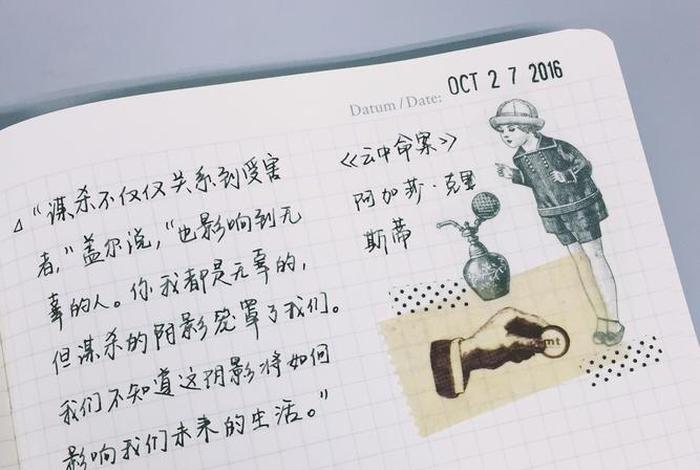 Datum / Date:
OCT 27 2016
△“谋杀不仅仅关系到受害
者，”盖尔说，“也影响到无
辜的人。你我都是无辜的，
但谋杀的阴影笼罩了我们。
我们不知道这阴影将如何
影响我们未来的生活。”
《云中命案》
阿加莎·克里
斯蒂
mt